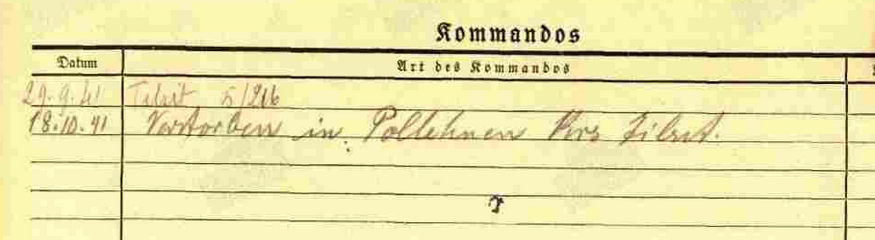 Kommandos
Datum Art des Kommandos
29.9.41 Tilsit 5/216
18.10.41 Verstorben in Pollehnen Krs Tilsit.